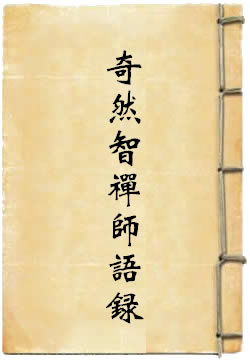 奇然智禪師語録